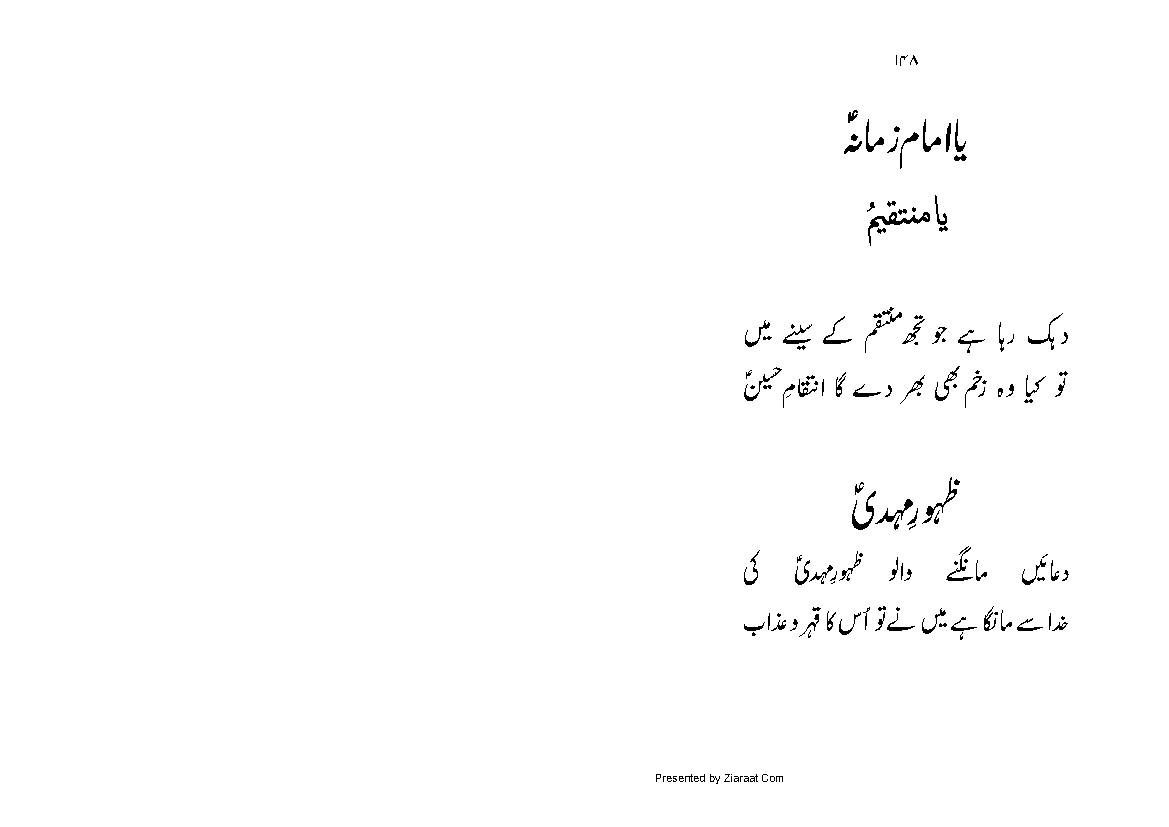 ۱۴۸
یا امام زمانہؑ
یا منتقیمُ
دہک رہا ہے جو تجھ منتقم کے سینے میں
تو کیا وہ زخم بھی بھر دے گا انتقامِ حسینؑ
ظہورِ مہدیؑ
دعائیں مانگنے والو ظہورِ مہدیؑ کی
خدا سے مانگا ہے میں نے تو اُس کا قہر و عذاب
Presented by Ziaraat Com